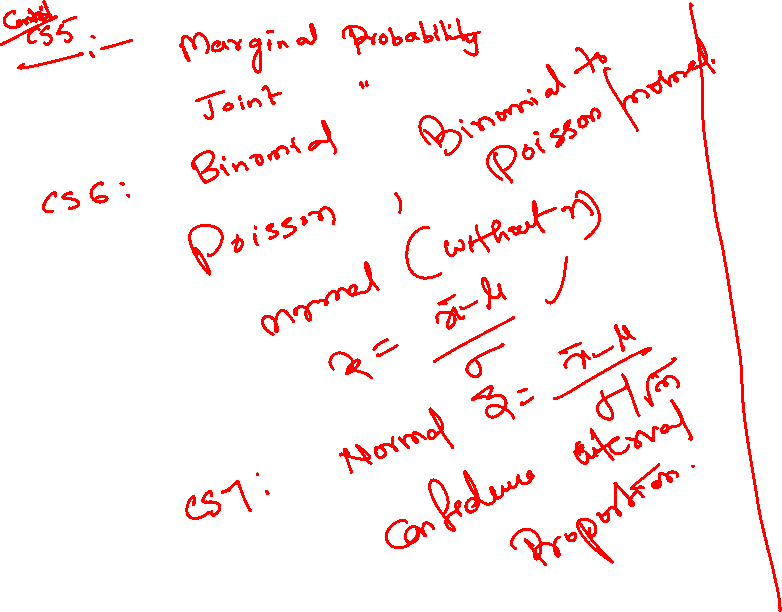 CS5 :- Marginal Probability
Joint "
CS6 : Binomial Binomial to
Poisson , Poisson
normal (without n)
z = x̄-μ / σ ,
CS7 : Normal z = x̄-μ / σ/√n
Confidence interval
Proportion.